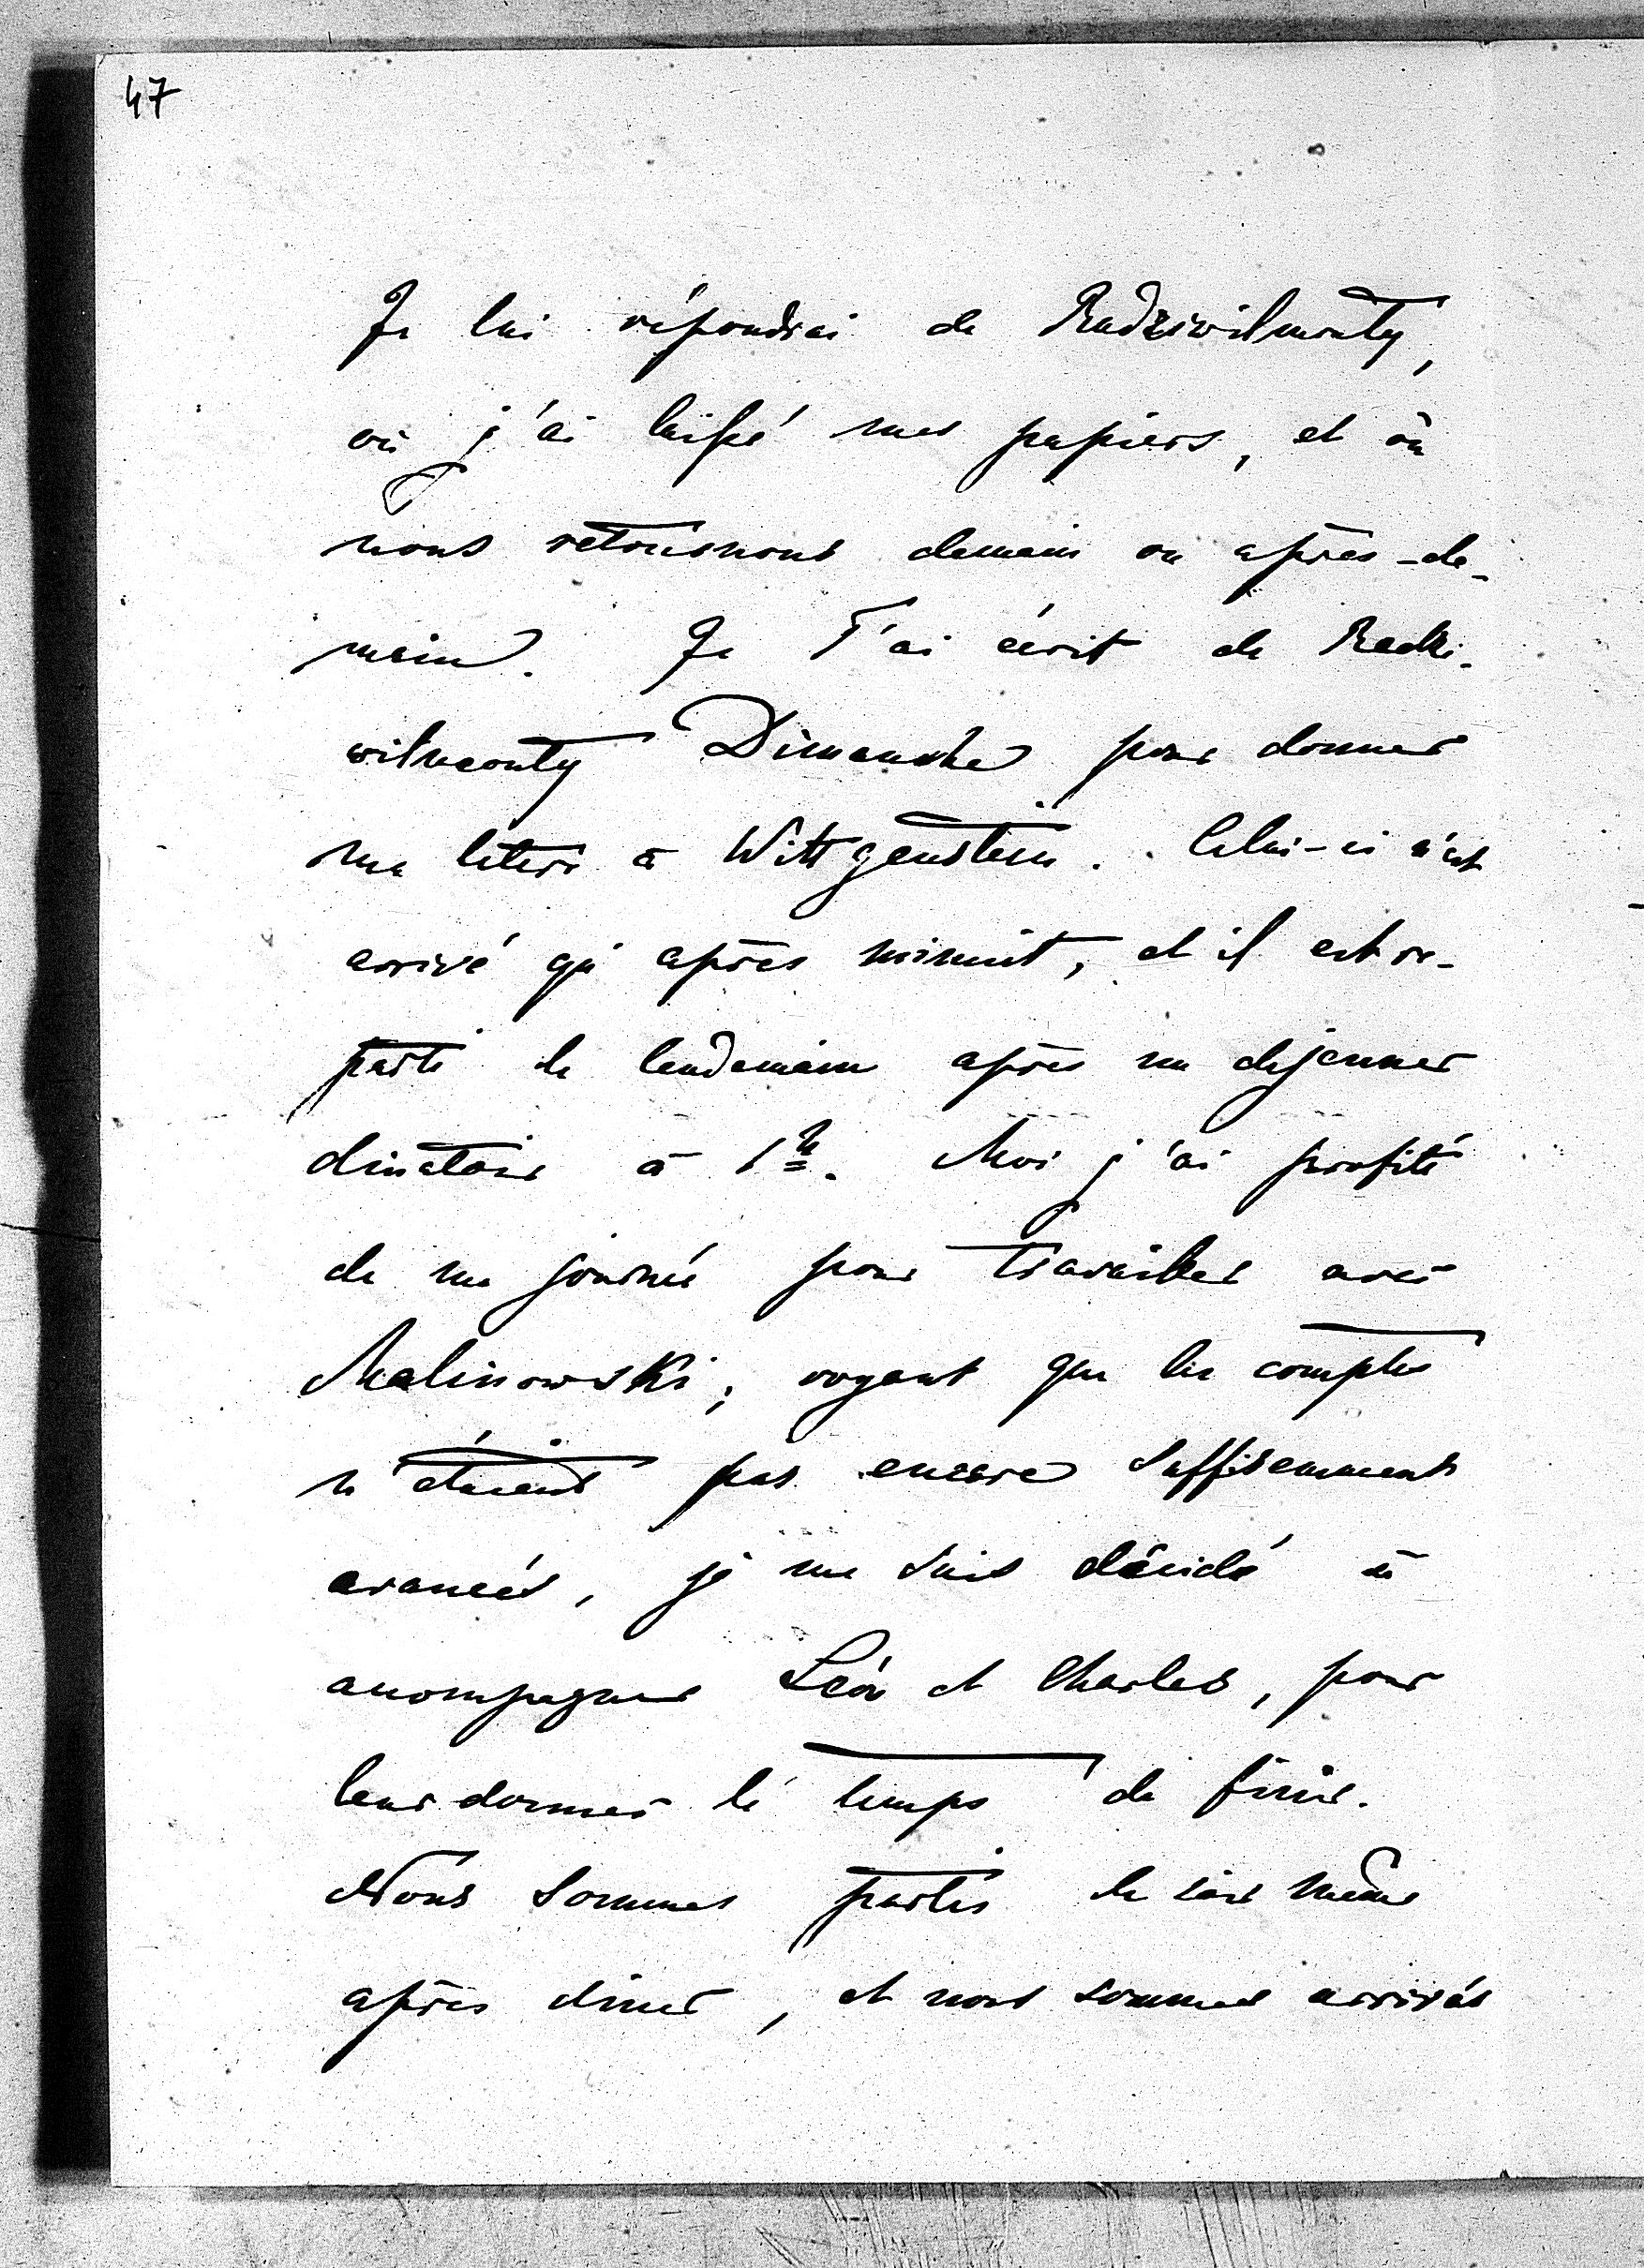 47
Je lui répondrai de Radziwilmonty,
où j'ai laissé mes papiers, et où
nous retournons demain ou après-de-
main. Je T'ai écrit de Radzi-
wilmonty Dimanche pour donner
ma lettre à Wittgenstein. Celui-ci n'est
arrivé qu'après minuit, et il est re-
parti le lendemain après un dejeuner
dinatoire à 1h. Moi j'ai profité
de ma journée pour travailler avec
Malinowski; voyant que les comptes
n'étaient pas encore suffisemment
avancés, je me suis décidé à
acompagner Léon et Charles, pour
leur donner le temps de finir.
Nous sommes partis le soir même
après diner, et nous sommes arrivés